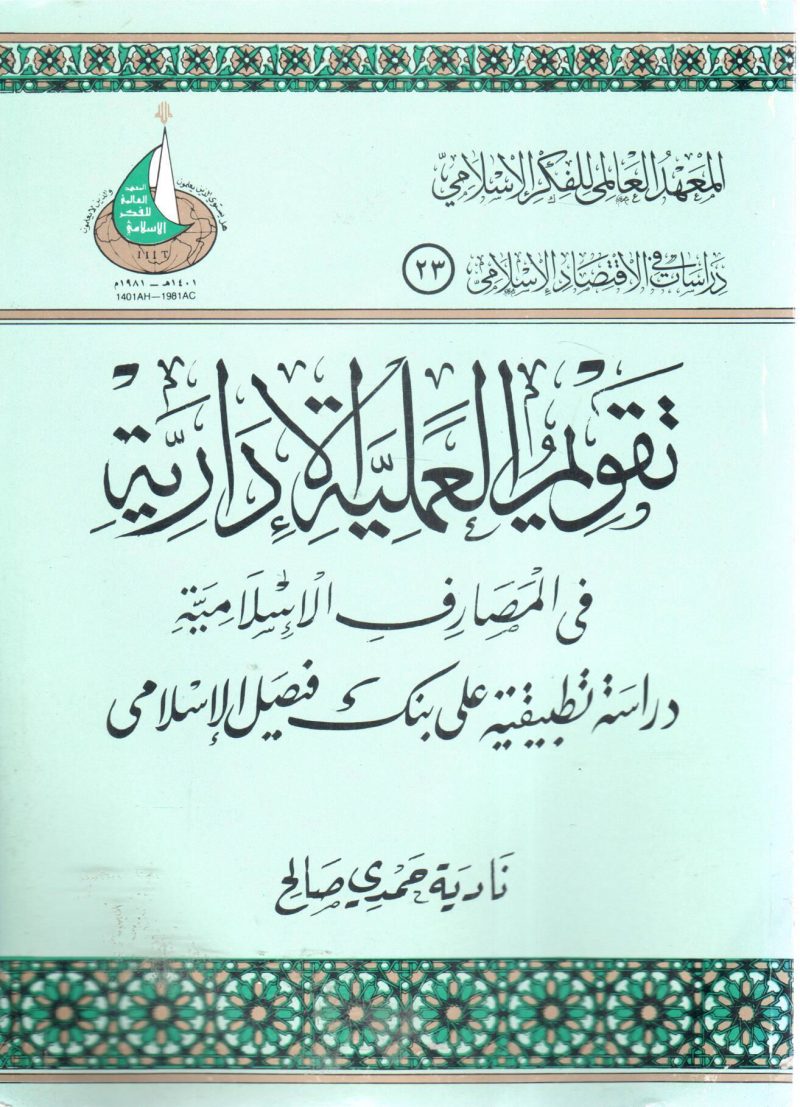 المعهد العالمي للفكر الإسلامي
دراسات في الاقتصاد الإسلامي (٢٣)
الله
هل يستوي الذين يعلمون والذين لا يعلمون
المعهد
العالمي
للفكر
الإسلامي
IIIT
١٤٠١هـ – ١٩٨١م
1401AH–1981AC
تقويم العملية الإدارية
في المصارف الإسلامية
دراسة تطبيقية على بنك فيصل الإسلامي
نادية حمدي صالح